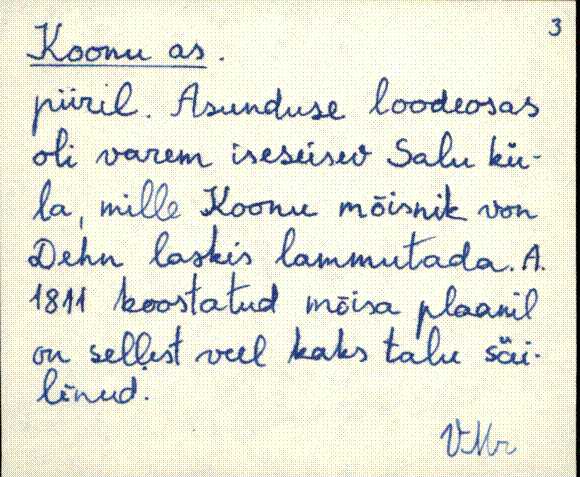 3
Koonu as.
piiril. Asunduse loodeosas
oli varem iseseisev Salu kü-
la, mille Koonu mõisnik von
Dehn laskis lammutada. A.
1811 koostatud mõisa plaanil
on sellest veel kaks talu säi-
linud.
VMr